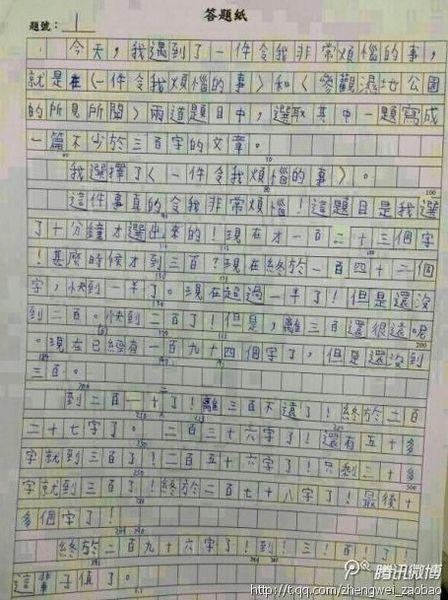 答題紙
題號：1
今天，我遇到了一件令我非常煩惱的事，
就是在〈一件令我煩惱的事〉和〈參觀濕地公園
的所見所聞〉兩道題目中，選取其中一題寫成
一篇不少於三百字的文章。
我選擇了〈一件令我煩惱的事〉。
這件事真的令我非常煩惱！這題目是我選
了十分鐘才選出來的！現在才一百二十三個字
！甚麼時候才到三百？現在終於一百四十二個
字，快到一半了。現在超過一半了！但是還沒
到二百。快到二百了！但是，離三百還很遠呢
。現在已經有一百九十四個字了，但是還沒到
三百。
到二百一十了！離三百不遠了！終於二百
二十七字了。二百三十六字了！還有五十多
字就到三百了！二百五十六字了！只剩三十多
字就到三百了！終於二百七十八字了！最後十
多個字了！
終於二百九十六字了！到！三百！了！
這事值了。
腾讯微博
http://t.qq.com/zhengwei_zaobao